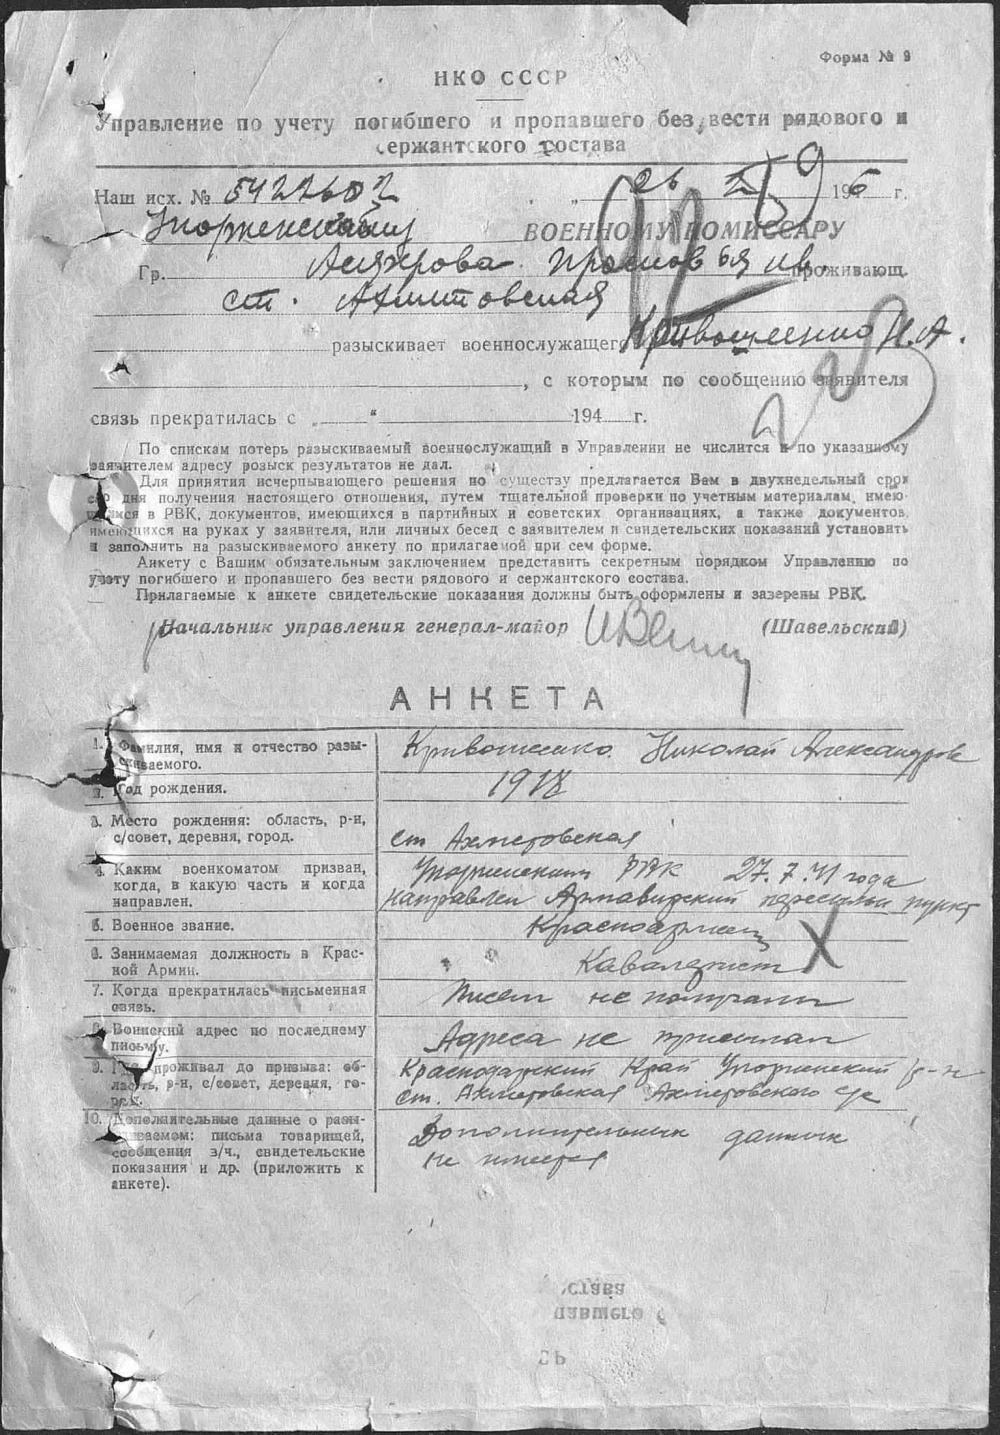 Форма № 9
НКО СССР
Управление по учету погибшего и пропавшего без вести рядового и
сержантского состава
Наш исх. № 5422602 „ 26 1946 г.
ВОЕННОМУ КОМИССАРУ
Гр. проживающ.
ст. Ахметовская
разыскивает военнослужащего Кривошеенко Н.А.
, с которым по сообщению заявителя
связь прекратилась с „ “ 194 г.
По спискам потерь разыскиваемый военнослужащий в Управлении не числится и по указанному
заявителем адресу розыск результатов не дал.
Для принятия исчерпывающего решения по существу предлагается Вам в двухнедельный срок
со дня получения настоящего отношения, путем тщательной проверки по учетным материалам, имею-
щимся в РВК, документов, имеющихся в партийных и советских организациях, а также документов,
имеющихся на руках у заявителя, или личных бесед с заявителем и свидетельских показаний установить
и заполнить на разыскиваемого анкету по прилагаемой при сем форме.
Анкету с Вашим обязательным заключением представить секретным порядком Управлению по
учету погибшего и пропавшего без вести рядового и сержантского состава.
Прилагаемые к анкете свидетельские показания должны быть оформлены и заверены РВК.
Начальник управления генерал-майор (Шавельский)
АНКЕТА
1. Фамилия, имя и отчество разы-
скиваемого.
Кривошеенко Николай Александров
2. Год рождения.
1918
3. Место рождения: область, р-н,
с/совет, деревня, город.
ст Ахметовская
4. Каким военкоматом призван,
когда, в какую часть и когда
направлен.
РВК 27.7.41 года
направлен Армавирский пересылой пункт
5. Военное звание.
Красноармеец
6. Занимаемая должность в Крас-
ной Армии.
Кавалерист
7. Когда прекратилась письменная
связь.
Писем не получали
8. Воинский адрес по последнему
письму.
Адреса не присылал
9. Где проживал до призыва: об-
ласть, р-н, с/совет, деревня, го-
род.
Краснодарский Край р-н
ст. Ахметовская Ахметовского с/с
10. Дополнительные данные о разы-
скиваемом: письма товарищей,
сообщения в/ч., свидетельские
показания и др. (приложить к
анкете).
Дополнительных данных
не имеется